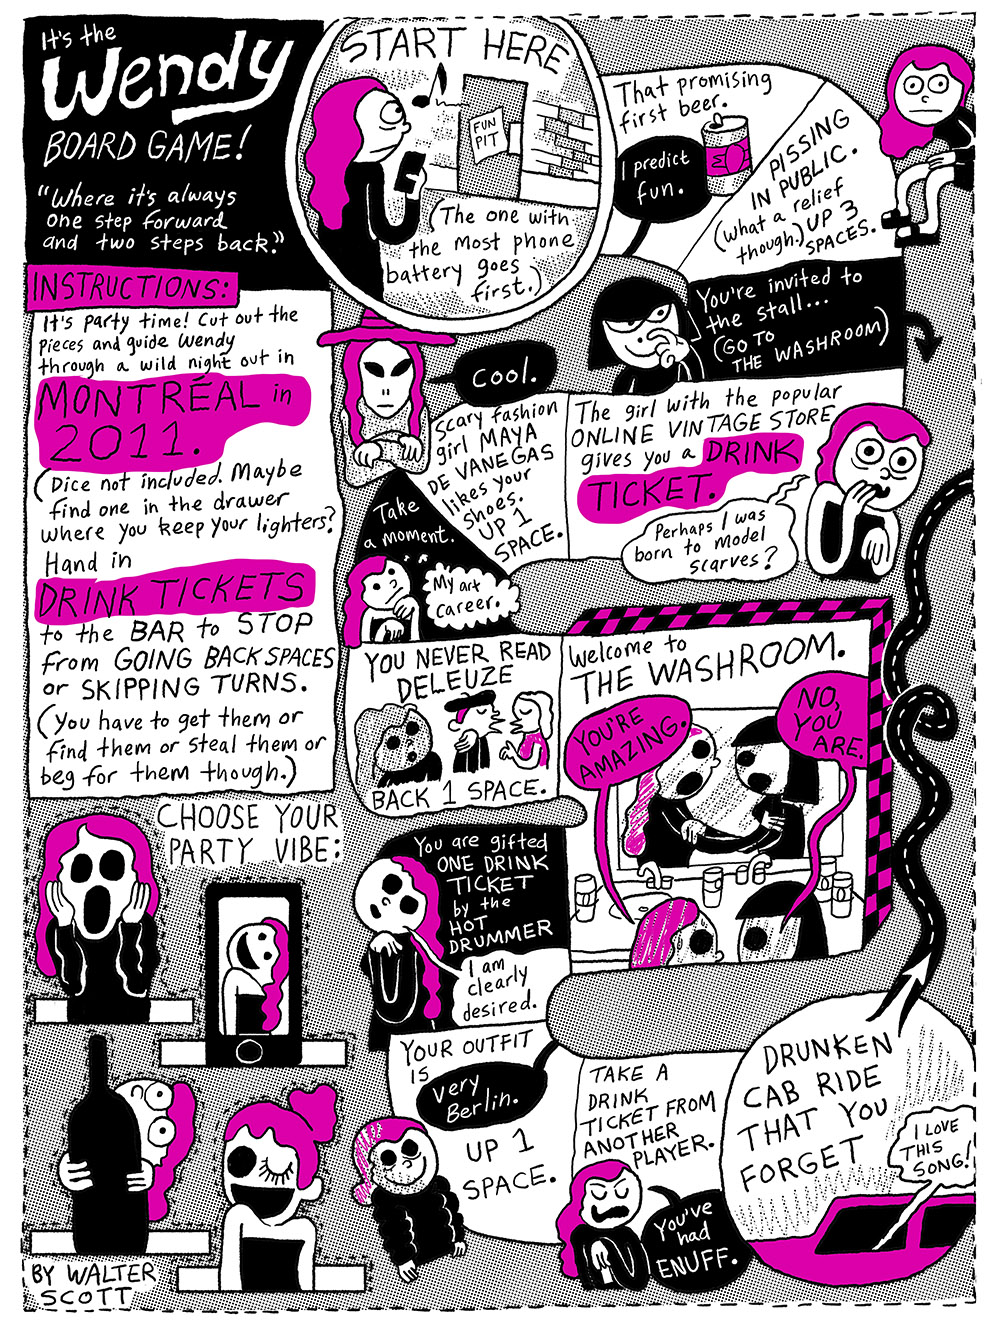 It's the
Wendy
BOARD GAME!
"Where it's always
one step forward
and two steps back."
INSTRUCTIONS:
It's party time! Cut out the
pieces and guide Wendy
through a wild night out in
MONTRÉAL in
2011.
(Dice not included. Maybe
find one in the drawer
where you keep your lighters?
Hand in
DRINK TICKETS
to the BAR to STOP
from GOING BACK SPACES
or SKIPPING TURNS.
(You have to get them or
find them or steal them or
beg for them though.)
CHOOSE YOUR
PARTY VIBE:
BY WALTER
SCOTT
START HERE
FUN
PIT
(The one with
the most phone
battery goes
first.)
That promising
first beer.
I predict
fun.
PISSING
IN PUBLIC.
(what a relief
though.) UP 3
SPACES.
You're invited to
the stall...
(GO TO
THE WASHROOM)
The girl with the popular
ONLINE VINTAGE STORE
gives you a DRINK
TICKET.
Perhaps I was
born to model
scarves?
Cool.
Scary fashion
girl MAYA
DE VANEGAS
likes your
shoes.
UP 1
SPACE.
Take
a moment.
My art
career.
YOU NEVER READ
DELEUZE
BACK 1 SPACE.
Welcome to
THE WASHROOM.
YOU'RE
AMAZING.
NO,
YOU
ARE.
You are gifted
ONE DRINK
TICKET
by the
HOT
DRUMMER
I am
clearly
desired.
YOUR OUTFIT
IS
Very
Berlin.
UP 1
SPACE.
TAKE A
DRINK
TICKET FROM
ANOTHER
PLAYER.
You've
had
ENUFF.
DRUNKEN
CAB RIDE
THAT YOU
FORGET
I LOVE
THIS
SONG!